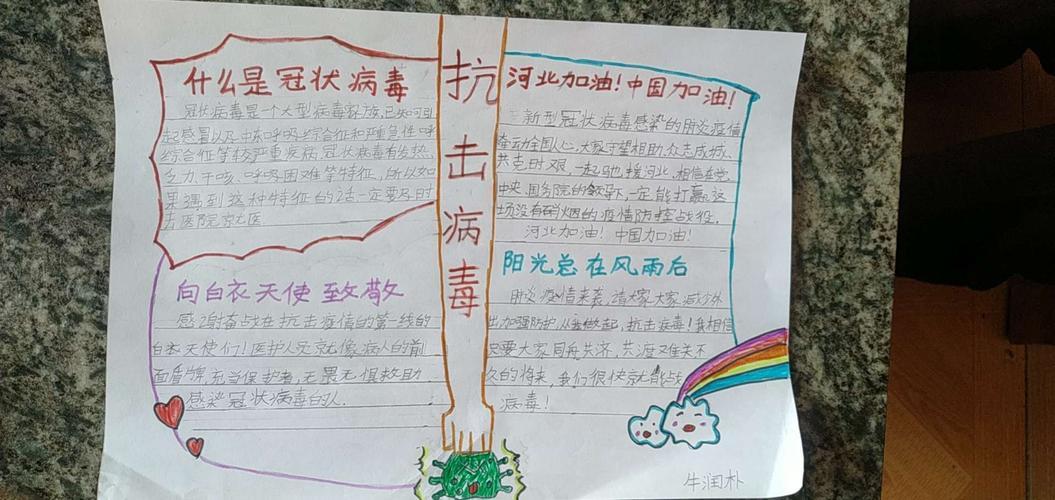 抗击病毒
什么是冠状病毒
冠状病毒是一个大型病毒家族,已知可引
起感冒以及中东呼吸综合征和严重急性呼
综合征等较严重疾病,冠状病毒有发热、
乏力、干咳、呼吸困难等特征,所以如
果遇到这种特征的话一定要及时
去医院就医
向白衣天使致敬
感谢奋战在抗击疫情的第一线的
白衣天使们!医护人员就像病人的前
面盾牌,充当保护者,无畏无惧救助
感染冠状病毒的人.
河北加油!中国加油!
新型冠状病毒感染的肺炎疫情
牵动全国人心,大家守望相助,众志成城、
共克时艰,一起驰援河北,相信在党
中央、国务院的领导下,一定能打赢这
场没有硝烟的疫情防控战役,
河北加油!中国加油!
阳光总在风雨后
肺炎疫情来袭,请大家大家减少外
出加强防护,从我做起,抗击病毒!我相信
只要大家同舟共济,共渡难关不
久的将来,我们很快就能战
病毒!
牛润朴